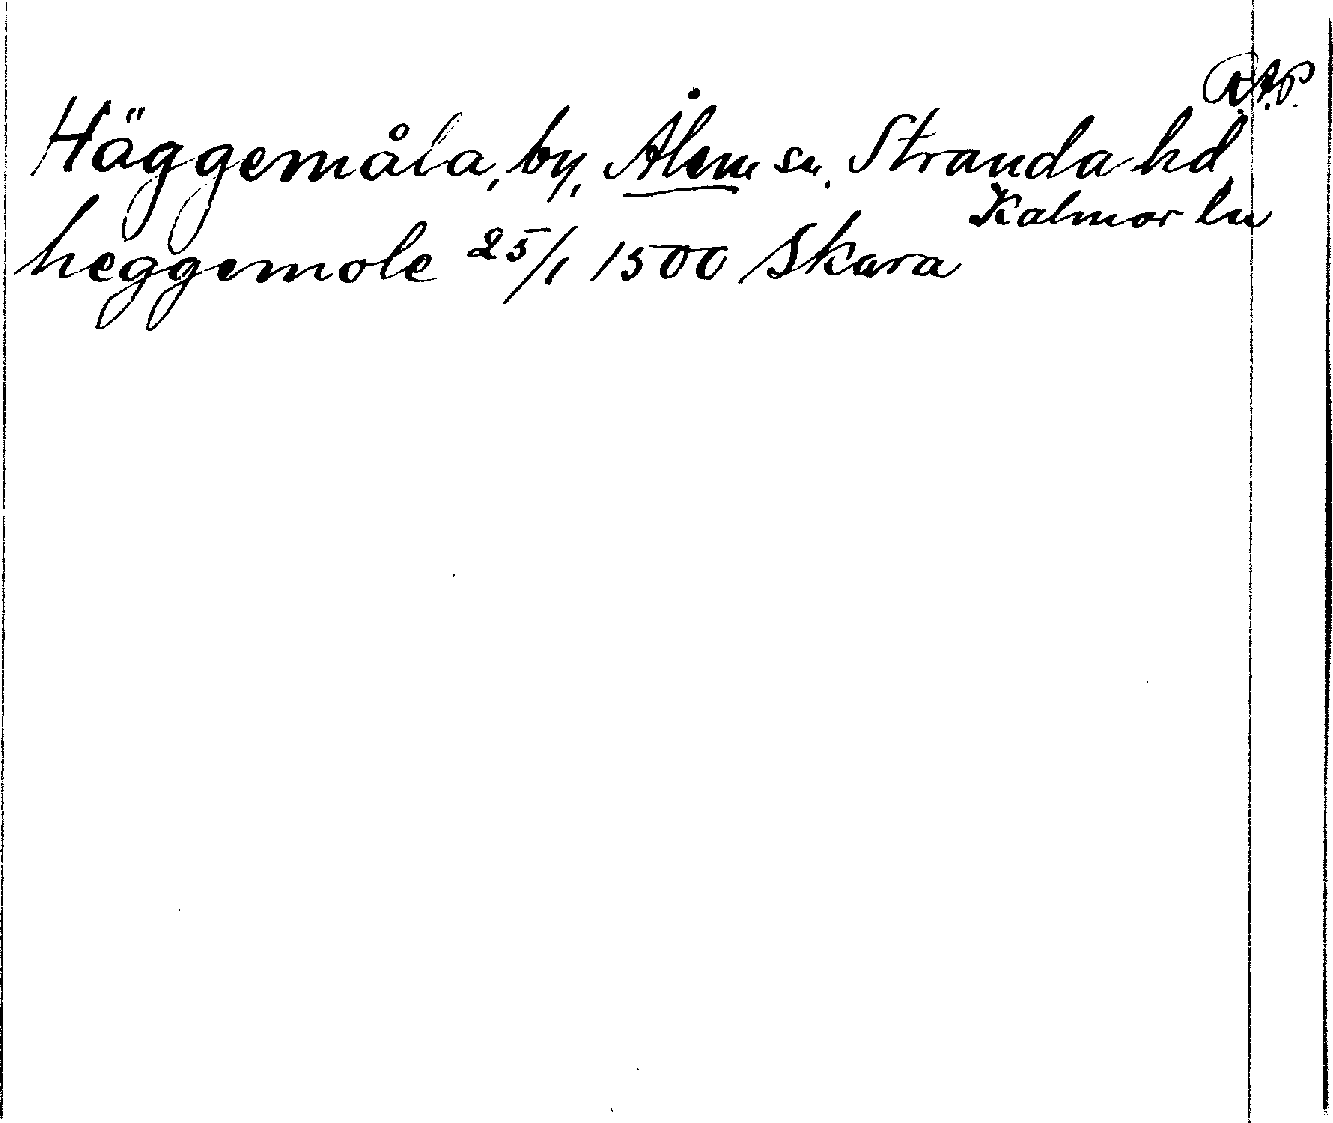 R.A.P.
Häggemåla, by, Ålem sn. Stranda hd
Kalmar ln
heggemole 25/1 1500 Skara